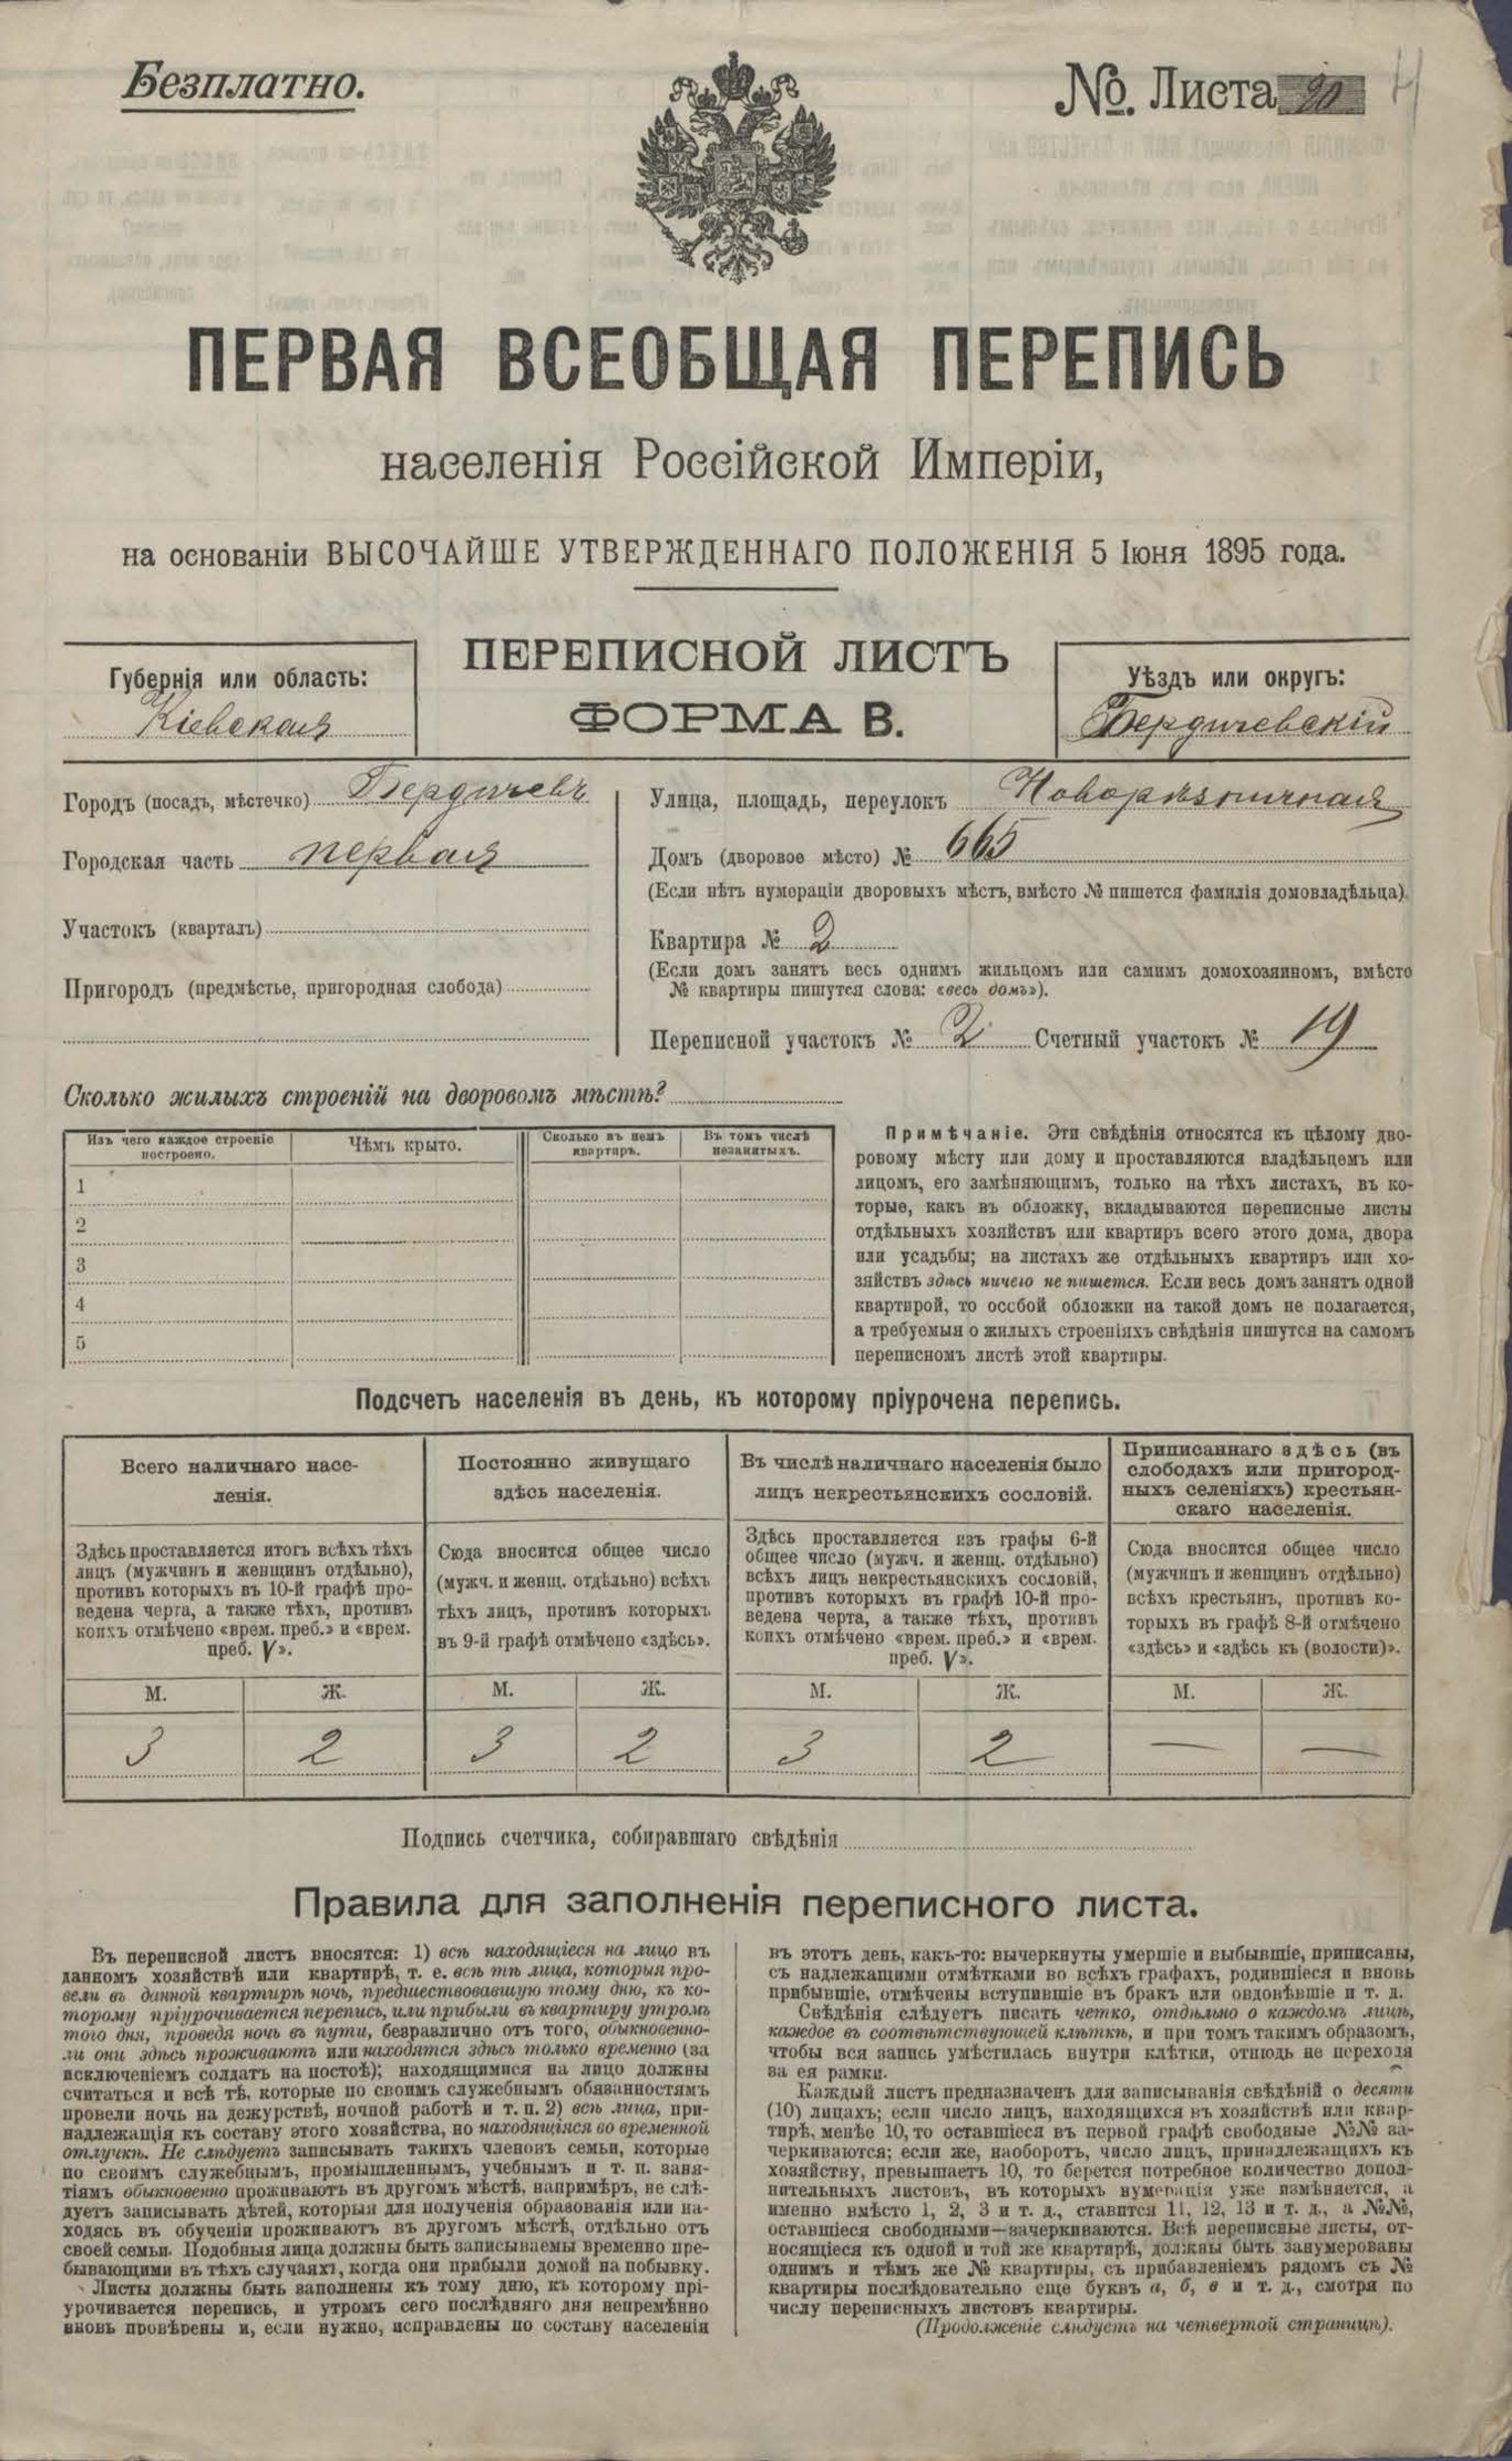 Безплатно.
№. Листа 20
4
ПЕРВАЯ ВСЕОБЩАЯ ПЕРЕПИСЬ
населенія Россійской Имперіи,
на основаніи ВЫСОЧАЙШЕ УТВЕРЖДЕННАГО ПОЛОЖЕНІЯ 5 Іюня 1895 года.
ПЕРЕПИСНОЙ ЛИСТЪ
ФОРМА В.
Губернія или область:
Кіевская
Уѣздъ или округъ:
Бердичевскій
Городъ (посадъ, мѣстечко) Бердичевъ
Городская часть первая
Участокъ (кварталъ)
Пригородъ (предмѣстье, пригородная слобода)
Улица, площадь, переулокъ Новорѣзничная
Домъ (дворовое мѣсто) № 665
(Если нѣтъ нумораціи дворовыхъ мѣстъ, вмѣсто № пишется фамилія домовладѣльца).
Квартира № 2
(Если домъ занятъ весь однимъ жильцомъ или самимъ домохозяиномъ, вмѣсто
№ квартиры пишутся слова: «весь домъ»).
Переписной участокъ № 2 Счетный участокъ № 19
Сколько жилыхъ строеній на дворовомъ мѣстѣ?
Изъ чего каждое строеніе
построено.
Чѣмъ крыто.
Сколько въ немъ
квартиръ.
Въ томъ числѣ
незанятыхъ.
1
2
3
4
5
Примѣчаніе. Эти свѣдѣнія относятся къ цѣлому дво-
ровому мѣсту или дому и проставляются владѣльцемъ или
лицомъ, его замѣняющимъ, только на тѣхъ листахъ, въ ко-
торые, какъ въ обложку, вкладываются переписные листы
отдѣльныхъ хозяйствъ или квартиръ всего этого дома, двора
или усадьбы; на листахъ же отдѣльныхъ квартиръ или хо-
зяйствъ здѣсь ничего не пишется. Если весь домъ занятъ одной
квартирой, то особой обложки на такой домъ не полагается,
а требуемыя о жилыхъ строеніяхъ свѣдѣнія пишутся на самомъ
переписномъ листѣ этой квартиры.
Подсчетъ населенія въ день, къ которому пріурочена перепись.
Всего наличнаго насе-
ленія.
Здѣсь проставляется итогъ всѣхъ тѣхъ
лицъ (мужчинъ и женщинъ отдѣльно),
противъ которыхъ въ 10-й графѣ про-
ведена черта, а также тѣхъ, противъ
коихъ отмѣчено «врем. преб.» и «врем.
преб. V».
Постоянно живущаго
здѣсь населенія.
Сюда вносится общее число
(мужч. и женщ. отдѣльно) всѣхъ
тѣхъ лицъ, противъ которыхъ
въ 9-й графѣ отмѣчено «здѣсь».
Въ числѣ наличнаго населенія было
лицъ некрестьянскихъ сословій.
Здѣсь проставляется изъ графы 6-й
общее число (мужч. и женщ. отдѣльно)
всѣхъ лицъ некрестьянскихъ сословій,
противъ которыхъ въ графѣ 10-й про-
ведена черта, а также тѣхъ, противъ
коихъ отмѣчено «врем. преб.» и «врем.
преб. V».
Приписаннаго здѣсь (въ
слободахъ или пригород-
ныхъ селеніяхъ) крестьян-
скаго населенія.
Сюда вносится общее число
(мужчинъ и женщинъ отдѣльно)
всѣхъ крестьянъ, противъ ко-
торыхъ въ графѣ 8-й отмѣчено
«здѣсь» и «здѣсь къ (волости)».
М. Ж. М. Ж. М. Ж. М. Ж.
3 2 3 2 3 2 — —
Подпись счетчика, собиравшаго свѣдѣнія
Правила для заполненія переписного листа.
Въ переписной листъ вносятся: 1) всѣ находящіеся на лицо въ
данномъ хозяйствѣ или квартирѣ, т. е. всѣ тѣ лица, которыя про-
вели въ данной квартирѣ ночь, предшествовавшую тому дню, къ ко-
торому пріурочивается перепись, или прибыли въ квартиру утромъ
того дня, проведя ночь въ пути, безразлично отъ того, обыкновенно-
ли они здѣсь проживаютъ или находятся здѣсь только временно (за
исключеніемъ солдатъ на постоѣ); находящимися на лицо должны
считаться и всѣ тѣ, которые по своимъ служебнымъ обязанностямъ
провели ночь на дежурствѣ, ночной работѣ и т. п. 2) всѣ лица, при-
надлежащія къ составу этого хозяйства, но находящіяся во временной
отлучкѣ. Не слѣдуетъ записывать такихъ членовъ семьи, которые
по своимъ служебнымъ, промышленнымъ, учебнымъ и т. п. заня-
тіямъ обыкновенно проживаютъ въ другомъ мѣстѣ, напримѣръ, не слѣ-
дуетъ записывать дѣтей, которыя для полученія образованія или на-
ходясь въ обученіи проживаютъ въ другомъ мѣстѣ, отдѣльно отъ
своей семьи. Подобныя лица должны быть записываемы временно пре-
бывающими въ тѣхъ случаяхъ, когда они прибыли домой на побывку.
Листы должны быть заполнены къ тому дню, къ которому прі-
урочивается перепись, и утромъ сего послѣдняго дня непремѣнно
вновь провѣрены и, если нужно, исправлены по составу населенія
въ этотъ день, какъ-то: вычеркнуты умершіе и выбывшіе, приписаны,
съ надлежащими отмѣтками во всѣхъ графахъ, родившіеся и вновь
прибывшіе, отмѣчены вступившіе въ бракъ или овдовѣвшіе и т. д.
Свѣдѣнія слѣдуетъ писать четко, отдѣльно о каждомъ лицѣ,
каждое въ соотвѣтствующей клѣткѣ, и при томъ такимъ образомъ,
чтобы вся запись умѣстилась внутри клѣтки, отнюдь не переходя
за ея рамки.
Каждый листъ предназначенъ для записыванія свѣдѣній о десяти
(10) лицахъ; если число лицъ, находящихся въ хозяйствѣ или квар-
тирѣ, менѣе 10, то оставшіеся въ первой графѣ свободные №№ за-
черкиваются; если же, наоборотъ, число лицъ, принадлежащихъ къ
хозяйству, превышаетъ 10, то берется потребное количество допол-
нительныхъ листовъ, въ которыхъ нумерація уже измѣняется, а
именно вмѣсто 1, 2, 3 и т. д., ставится 11, 12, 13 и т. д., а №№,
оставшіеся свободными—зачеркиваются. Всѣ переписные листы, от-
носящіеся къ одной и той же квартирѣ, должны быть занумерованы
однимъ и тѣмъ же № квартиры, съ прибавленіемъ рядомъ съ №
квартиры послѣдовательно еще буквъ а, б, в и т. д., смотря по
числу переписныхъ листовъ квартиры.
(Продолженіе слѣдуетъ на четвертой страницѣ).